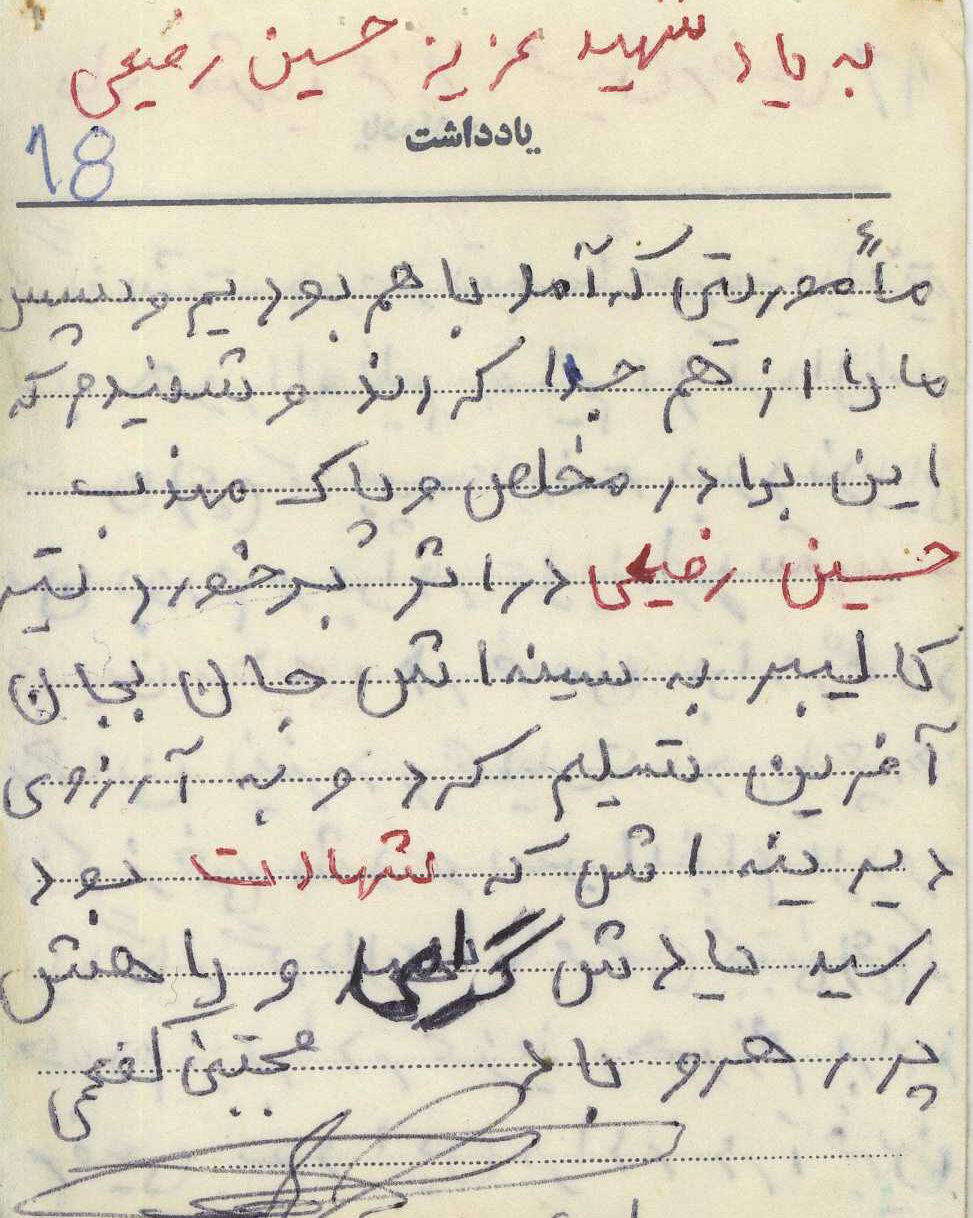 به یاد شهید عزیز حسین رفیعی
یادداشت
18
مأموریتی که آمد با هم بودیم و سپس
ما را از هم جدا کردند و شنیدم که
این برادر مخلص و پاک مهذب
حسین رفیعی در اثر برخورد تیر
کالیبر به سینه اش جان بجان
آفرین تسلیم کرد و به آرزوی
دیرینه اش که شهادت بود
رسید یادش گرامی و راهش
پر رهرو باد مجتبی